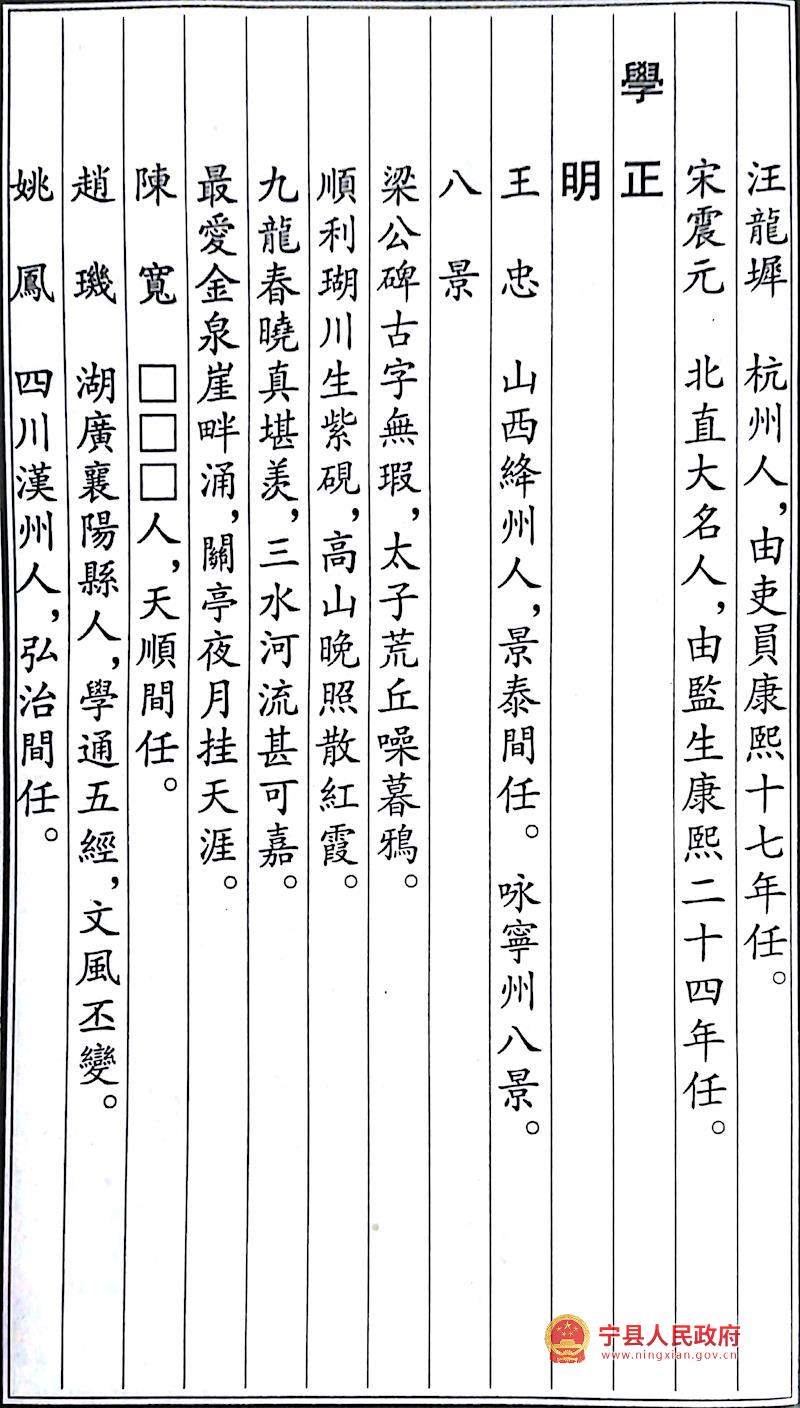 汪龍墀　杭州人，由吏員康熙十七年任。
宋震元　北直大名人，由監生康熙二十四年任。
學正
明
王忠　山西絳州人，景泰間任。咏寧州八景。
八景
梁公碑古字無瑕，太子荒丘噪暮鴉。
順利瑚川生紫硯，高山晚照散紅霞。
九龍春曉真堪羨，三水河流甚可嘉。
最愛金泉崖畔涌，關亭夜月挂天涯。
陳寬　□□□人，天順間任。
趙璣　湖廣襄陽縣人，學通五經，文風丕變。
姚鳳　四川漢州人，弘治間任。
宁县人民政府
www.ningxian.gov.cn